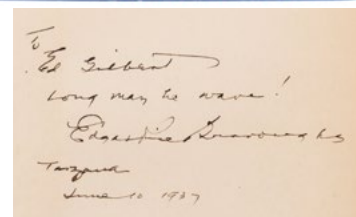 To
Ed Gilbert
Long may he wave!
Edgar Rice Burroughs
Tarzana
June 10 1937